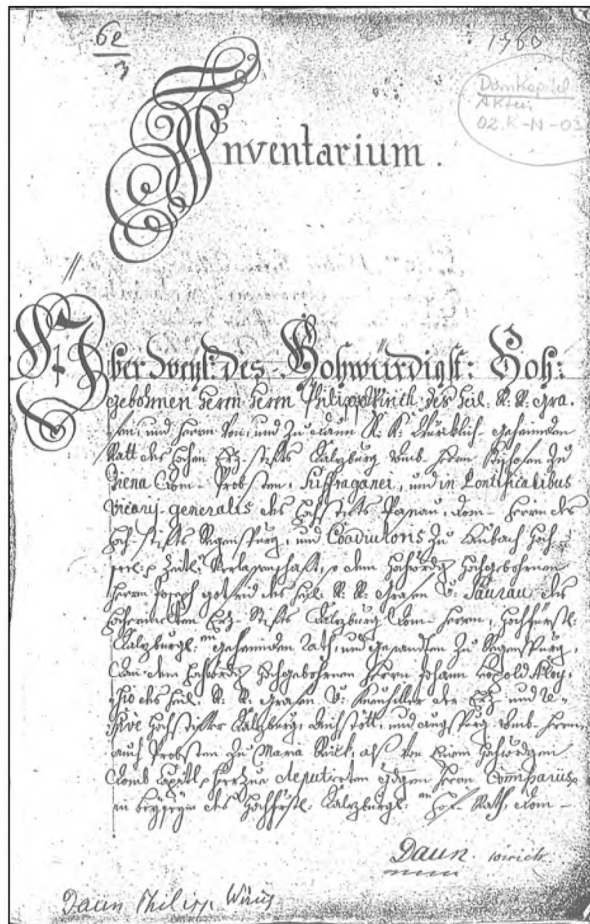 62
3
1763
Domkapitel
Akten
02.K-N-03
Inventarium.
Über Weyl. des Hohwürdigst: Hoh:
gebohrnen Herrn Herrn Philipp Wirich, des Heil. R: R: Gra-
fen, und Herrn von, und zu Daun R: K: Würklich-geheimden
Rath des Hohen Erz-Stifts Salzburg Domb Herrn Bischofen zu
Dom-Probsten, Suffraganei, und in Pontificalibus
Vicary-generalis des Hochstifts Passau, Dom-Herrn des
Hoch-Stifts Regenspurg, und Coadjutoris zu
Zeitl: Verlassenschaft, so dem Hochwürdig Hochgebohrnen
Herrn Joseph des Heil: R: R: Grafen v: Saurau, des
Erz-Stifts Salzburg Dom-Herrn, Hochfürstl:
Salzburgl: geheimden Rath, und Gesandten zu Regenspurg,
dem Hochwürdig Hochgebohrnen Herrn Johann Leopold Aloy-
sio des Heil: R: R: Grafen v: der Erz und
Hochstiffter Salzburg, und Augspurg Domb-Herrn,
auch Probsten zu Maria als von Einem Hochwürdigen
Domb hierzue deputirten Herrn Commissarys
in beyseyn des Hochfürstl: Salzburgl: Hof-Rath, Dom-
Daun wirich
Daun Philipp Wirich